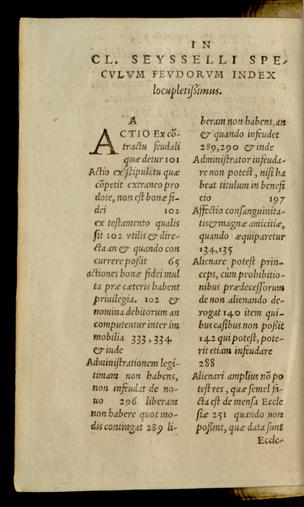 IN
CL. SEYSSELLI SPE-
CVLVM FEVDORVM INDEX
locupletißimus.
A
ACTIO Ex cō-
tractu feudali
quæ detur 101
Actio ex stipulatu quæ
cōpetit extraneo pro
dote, non est bonæ fi-
dei 102
ex testamento qualis
sit 102 vtilis & dire-
cta an & quando con
currere poßit 65
actiones bonæ fidei mul
ta præ cæteris habent
priuilegia. 102 &
nomina debitorum an
computentur inter im
mobilia 333,334
& inde
Administrationem legi-
timam non habens,
non infeudat de no-
uo 296 liberam
non habere quot mo-
dis contingat 289 li-
beram non habens, an
& quando infeudet
289,290 & inde
Administrator infeuda-
re non potest, nisi ha
beat titulum in benefi
cio 197
Affectio consanguinita-
tis & magnæ amicitiæ,
quando æquiparetur
134,135
Alienare potest prin-
ceps, cum prohibitio-
nibus prædecessorum
de non alienando de-
rogat 140 item qui-
bus casibus non poßit
142 qui potest, pote-
rit etiam infeudare
288
Alienari amplius nō po
test res, quæ semel fa-
cta est de mensa Eccle
siæ 251 quando non
poßint, quæ data sunt
Eccle-